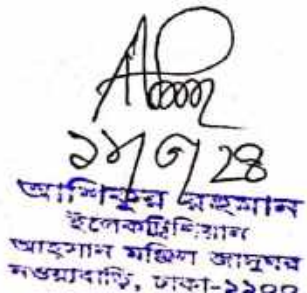 আশিকুর রহমান
ইলেকট্রিশিয়ান
আহসান মঞ্জিল জাদুঘর
নওয়াবাড়ি, ঢাকা-১১০০